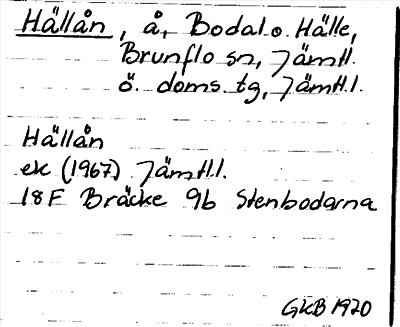 Hällån, å, Bodal o. Hälle,
Brunflo sn, Jämtl.
ö. doms. tg, Jämtl.l.
Hällån
ek (1967) Jämtl.l.
18F Bräcke 9b Stenbodarna
GKB 1970